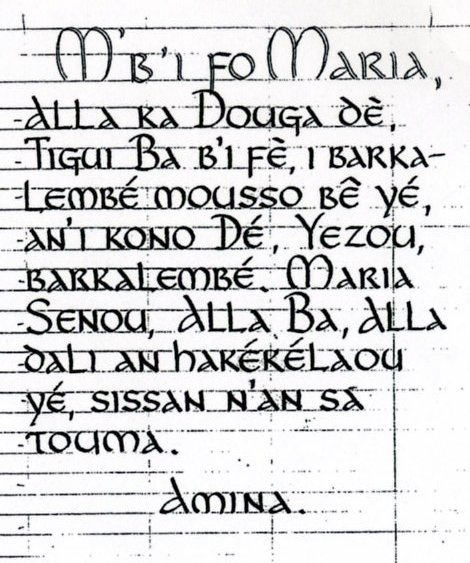 M'b'i fo Maria,
Alla ka Douga dè,
Tigui Ba b'i fè, i barka-
lembé mousso bê yé,
an'i kono Dé, Yezou,
barkalembé. Maria
Senou, Alla Ba, Alla
dali an hakékélaou
yé, sissan n'an sa
touma.
Amina.